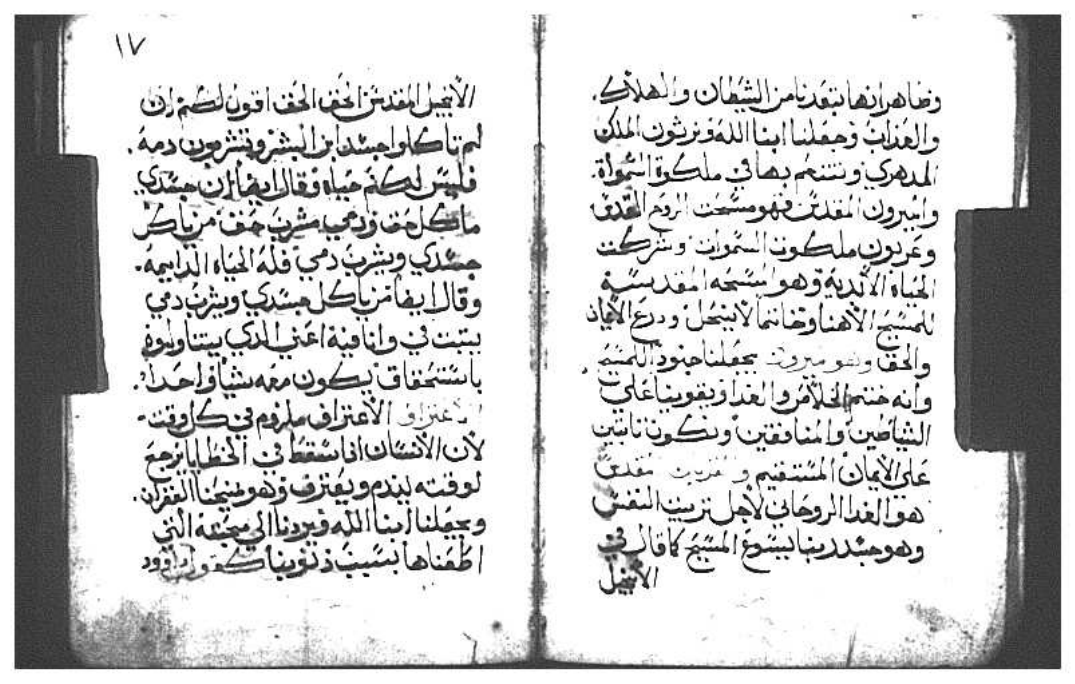 وضاهر انها تبعدنا من الشيطان والهلاك.
والعداب وجعلنا ابنا الله ونرتون الملك
المدهري ونتنعم بها في ملكوة السمواة.
والميرون المقدس فهو مسحت الروح القدس
وعربون ملكوت السموات وشركت
الحياة الابدية وهو المسحه المقدسة
للمسيح الاهنا وخاتما لانجيل ودرع الايمان
والحق وهو ميرون يجعلنا جنودا للمسيح
وانه ختم الخلاص والغدا ويقوينا على
الشياطين والمنافقين ونكون تابتين
على الايمان المستقيم والقربان مقدس
هو الغدا الروحاني لاجل تربيت النفس
وهو جسد ربنا يسوع المسيح كما قال في
الانجيل
١٧
الانجيل المقدس الحق الحق اقول لكم ان
لم تاكلوا جسد ابن البشر وتشربون دمه.
فليس لكم حياه وقال ايضا ان جسدي
ماكل حق ودمي مشرب حق من ياكل
جسدي ويشرب دمي فله الحياه الدايمه.
وقال ايضا من ياكل جسدي ويشرب دمي
يتبت في وانا فيه اعني الدي يتناولوه
باستحقاق يكون معه شيا واحدا.
الاعتراف الاعتراف ملزوم في كل وقت
لان الانسان ادا سقط في الخطايا يرجع
لوقته يندم ويعترف وهو يمنحنا الغفران.
ويجعلنا ابنا الله ويردنا الي محبته التي
اضعناها بسبب دنوبنا كقول داوود